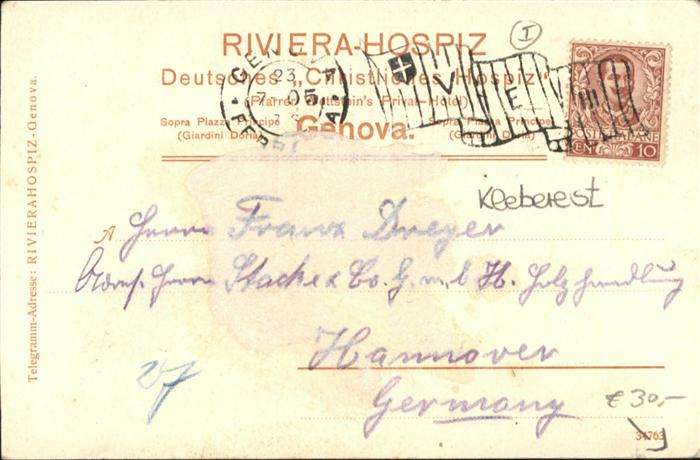 RIVIERA-HOSPIZ
Deutsches „Christliches Hospiz“
(Pfarrer Privat-Hotel)
Sopra Piazza Principe
(Giardini Doria)
Genova.
Sopra Piazza Principe
(Giardini Doria)
23
7 05
FERROVIA
I
V E III
10
Kleberest
Herrn Franz Dreyer
Adress. Herrn Stache & Co. G.m.b H. Holzhandlung
Hannover
Germany
€ 30,-
34763
Telegramm-Adresse: RIVIERAHOSPIZ-Genova.